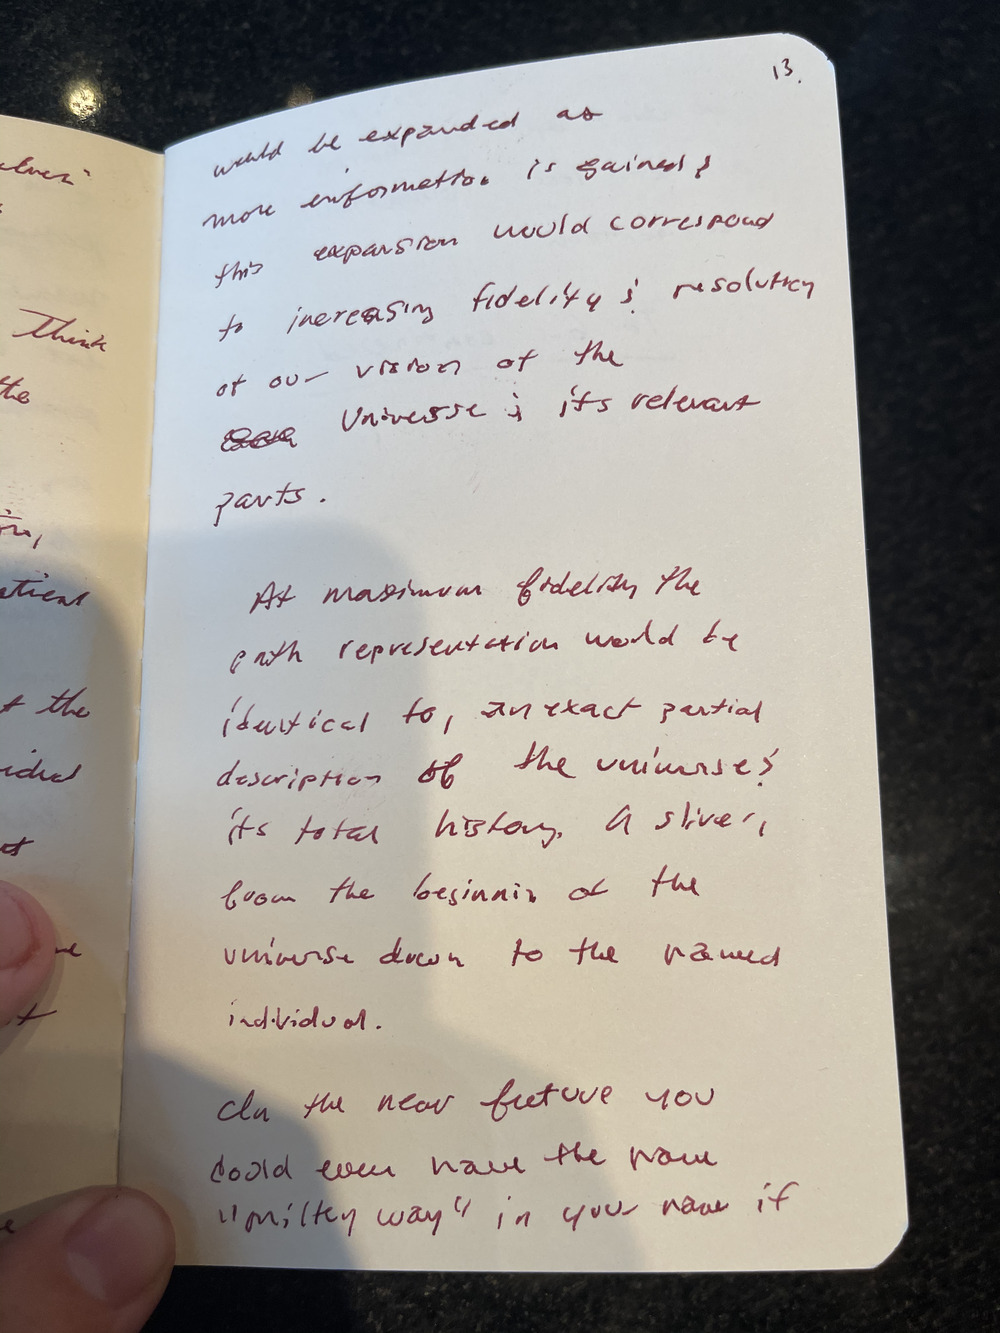 13.
would be expanded as
more information is gained;
this expansion would correspond
to increasing fidelity & resolution
of our vision of the
Universe & its relevant
parts.
At maximum fidelity the
path representation would be
identical to, an exact partial
description of the universe &
its total history. A sliver,
from the beginnin of the
universe down to the named
individual.
In the near future you
could even have the name
"milky way" in your name if
elves"
Think
the
atical
the
vidual